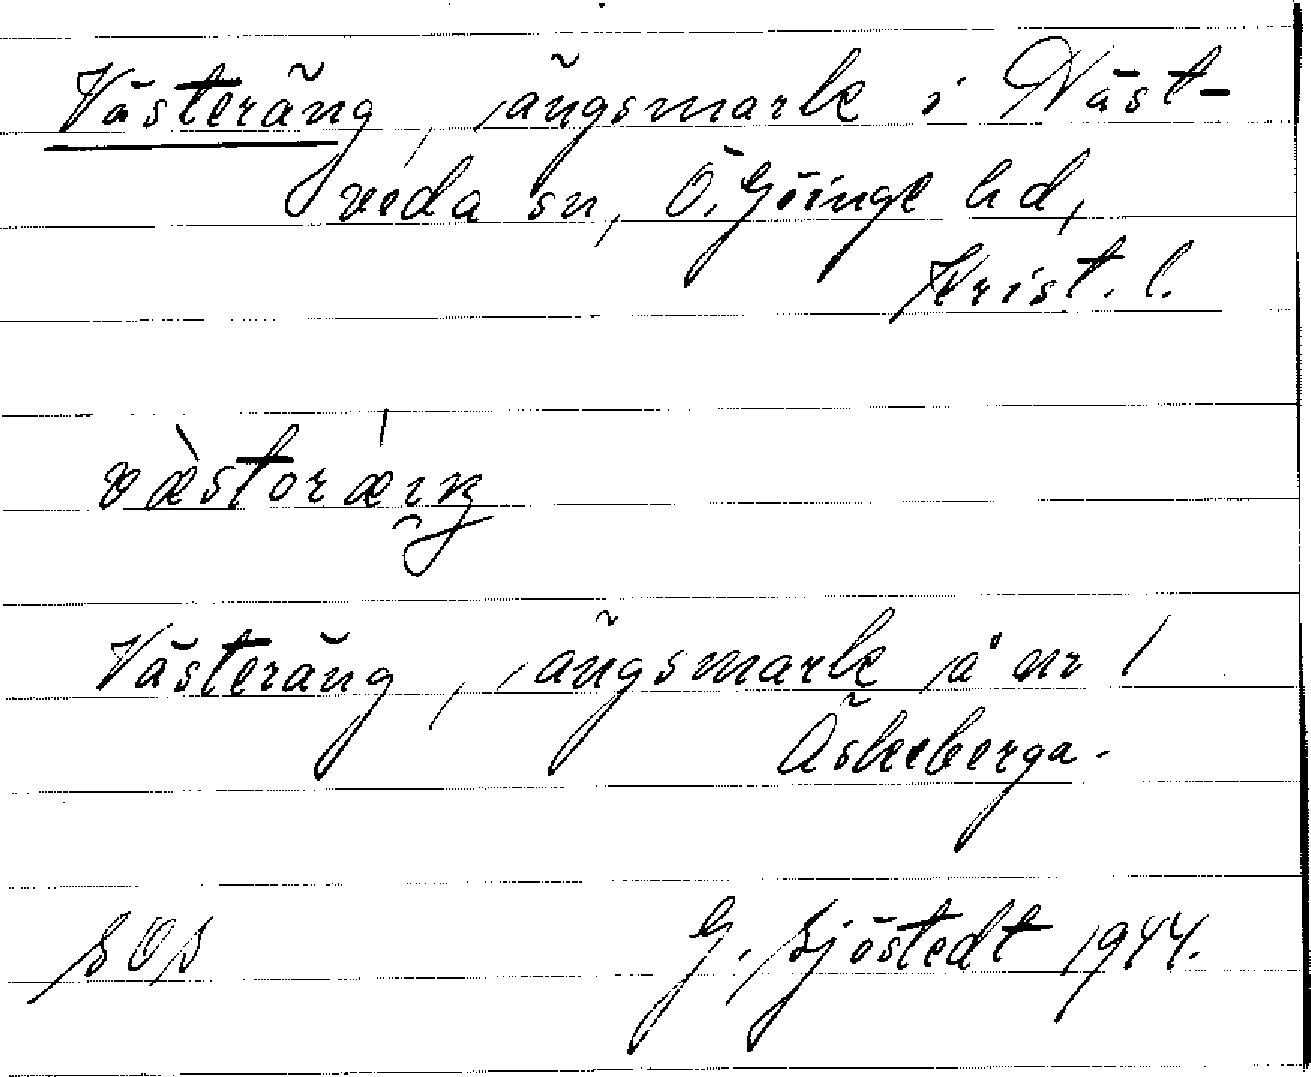 Västeräng, ängsmark i Näst-
veda sn, Ö. Göinge hd,
Krist. l.
væ̀storǽŋ
Västeräng, ängsmark å nr 1
Äskeberga.
SOS G. Sjöstedt 1944.